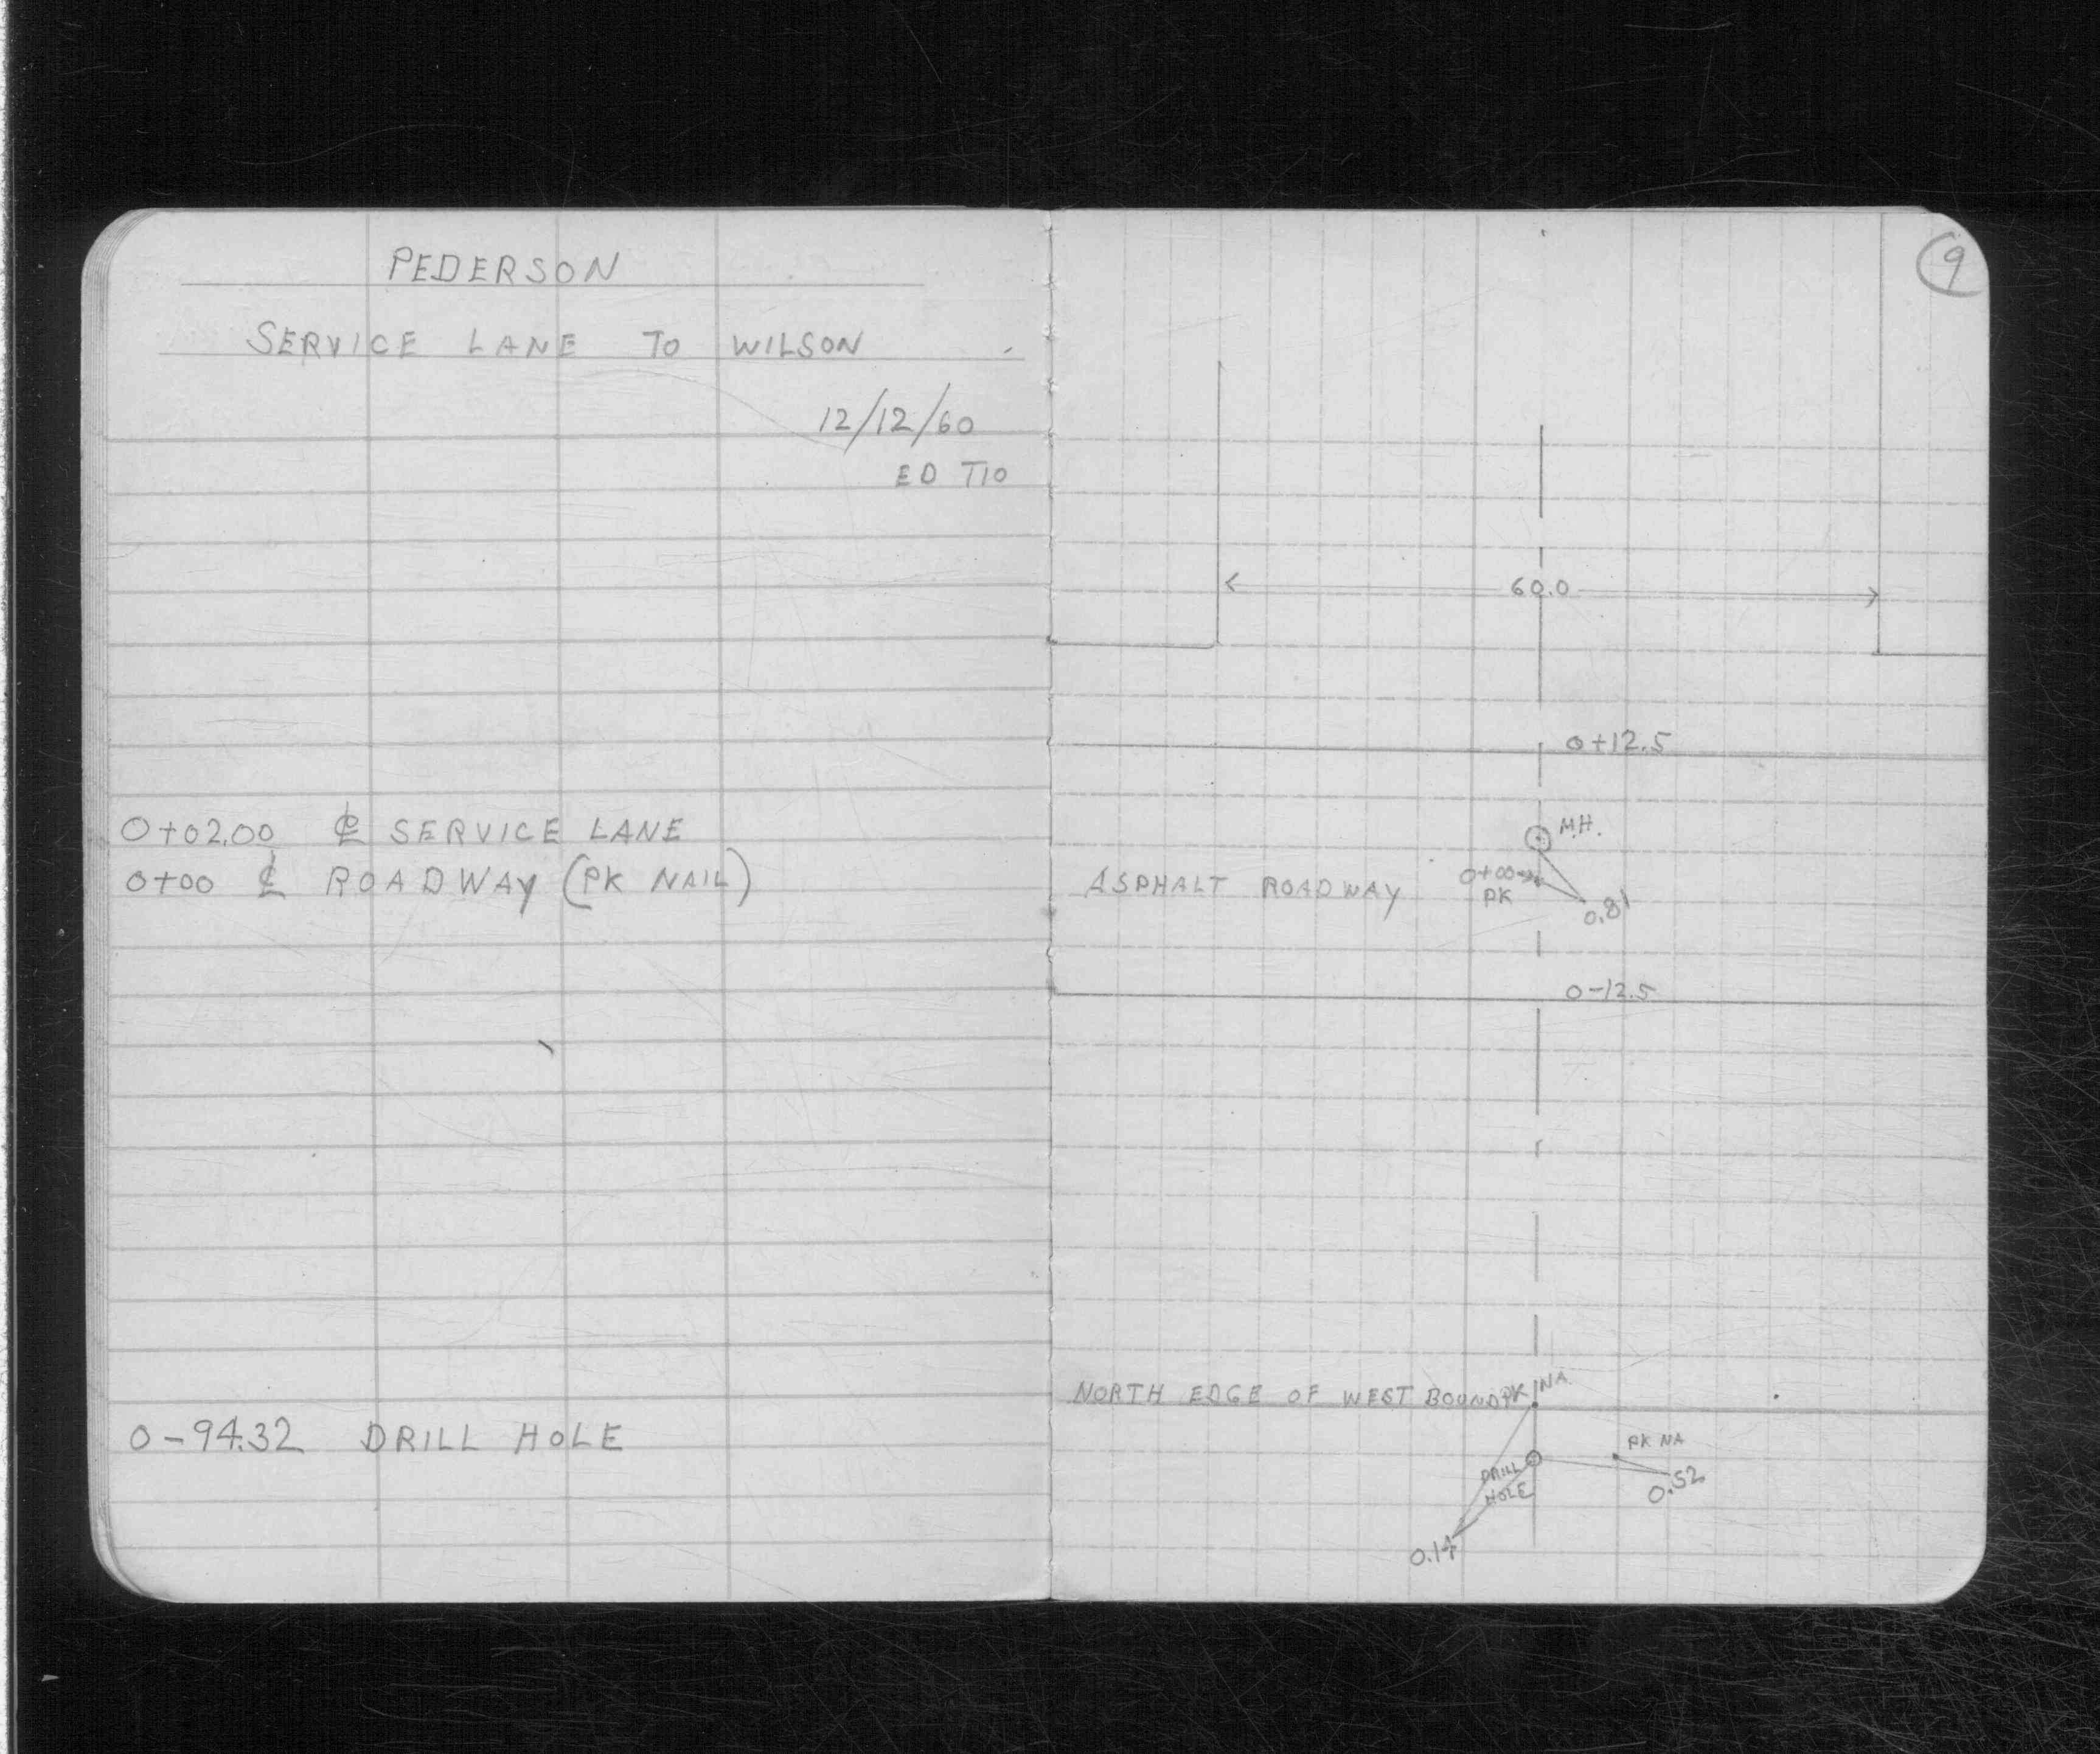 PEDERSON
SERVICE LANE TO WILSON
12/12/60
ED TIO
0+02.00 ℄ SERVICE LANE
0+00 ℄ ROADWAY (PK NAIL)
0-94.32 DRILL HOLE
9
60.0
0+12.5
M.H.
0+00
PK
ASPHALT ROADWAY
0.81
0-12.5
NORTH EDGE OF WEST BOUND
PK NA
PK NA
DRILL
HOLE
0.52
0.14